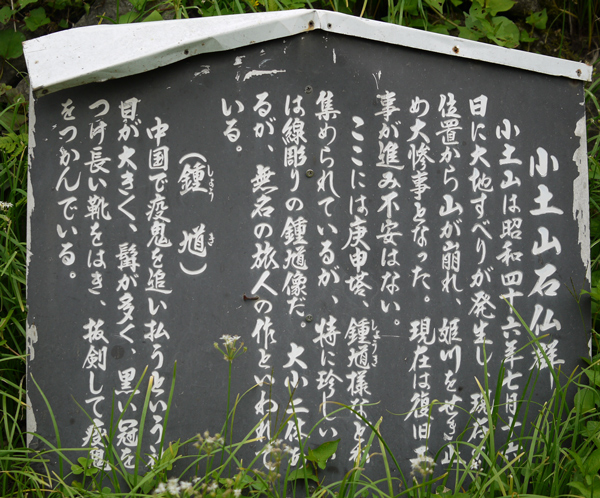 小土山石仏群
小土山は昭和四十六年七月
日に大地すべりが発生し、現在
位置から山が崩れ、姫川をせき
め大惨事となった。現在は復旧
事が進み不安はない。
ここには庚申塔、鍾馗様
しょうき
集められているが、特に珍しい
は線彫りの鍾馗像だ。大小二体
るが、無名の旅人の作といわれ
いる。
（鍾馗）
しょうき
中国で疫鬼を追い払うという
目が大きく、髯が多く、黒い冠を
つけ長い靴をはき、抜剣して疫鬼
をつかんでいる。